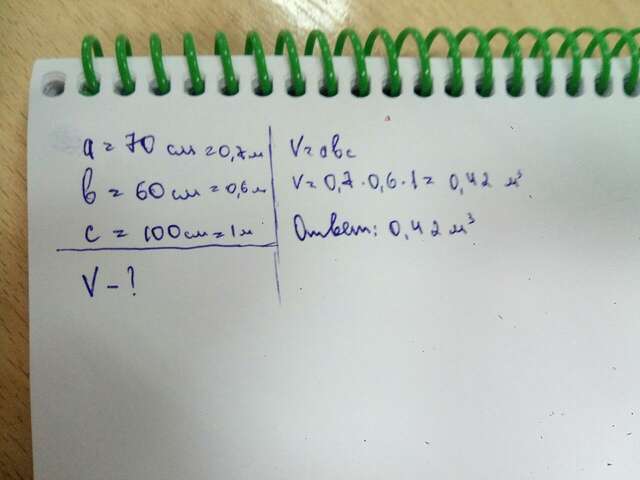 a = 70 см = 0,7 м
b = 60 см = 0,6 м
c = 100 см = 1 м
V - ?
V = abc
V = 0,7 · 0,6 · 1 = 0,42 м³
Ответ: 0,42 м³